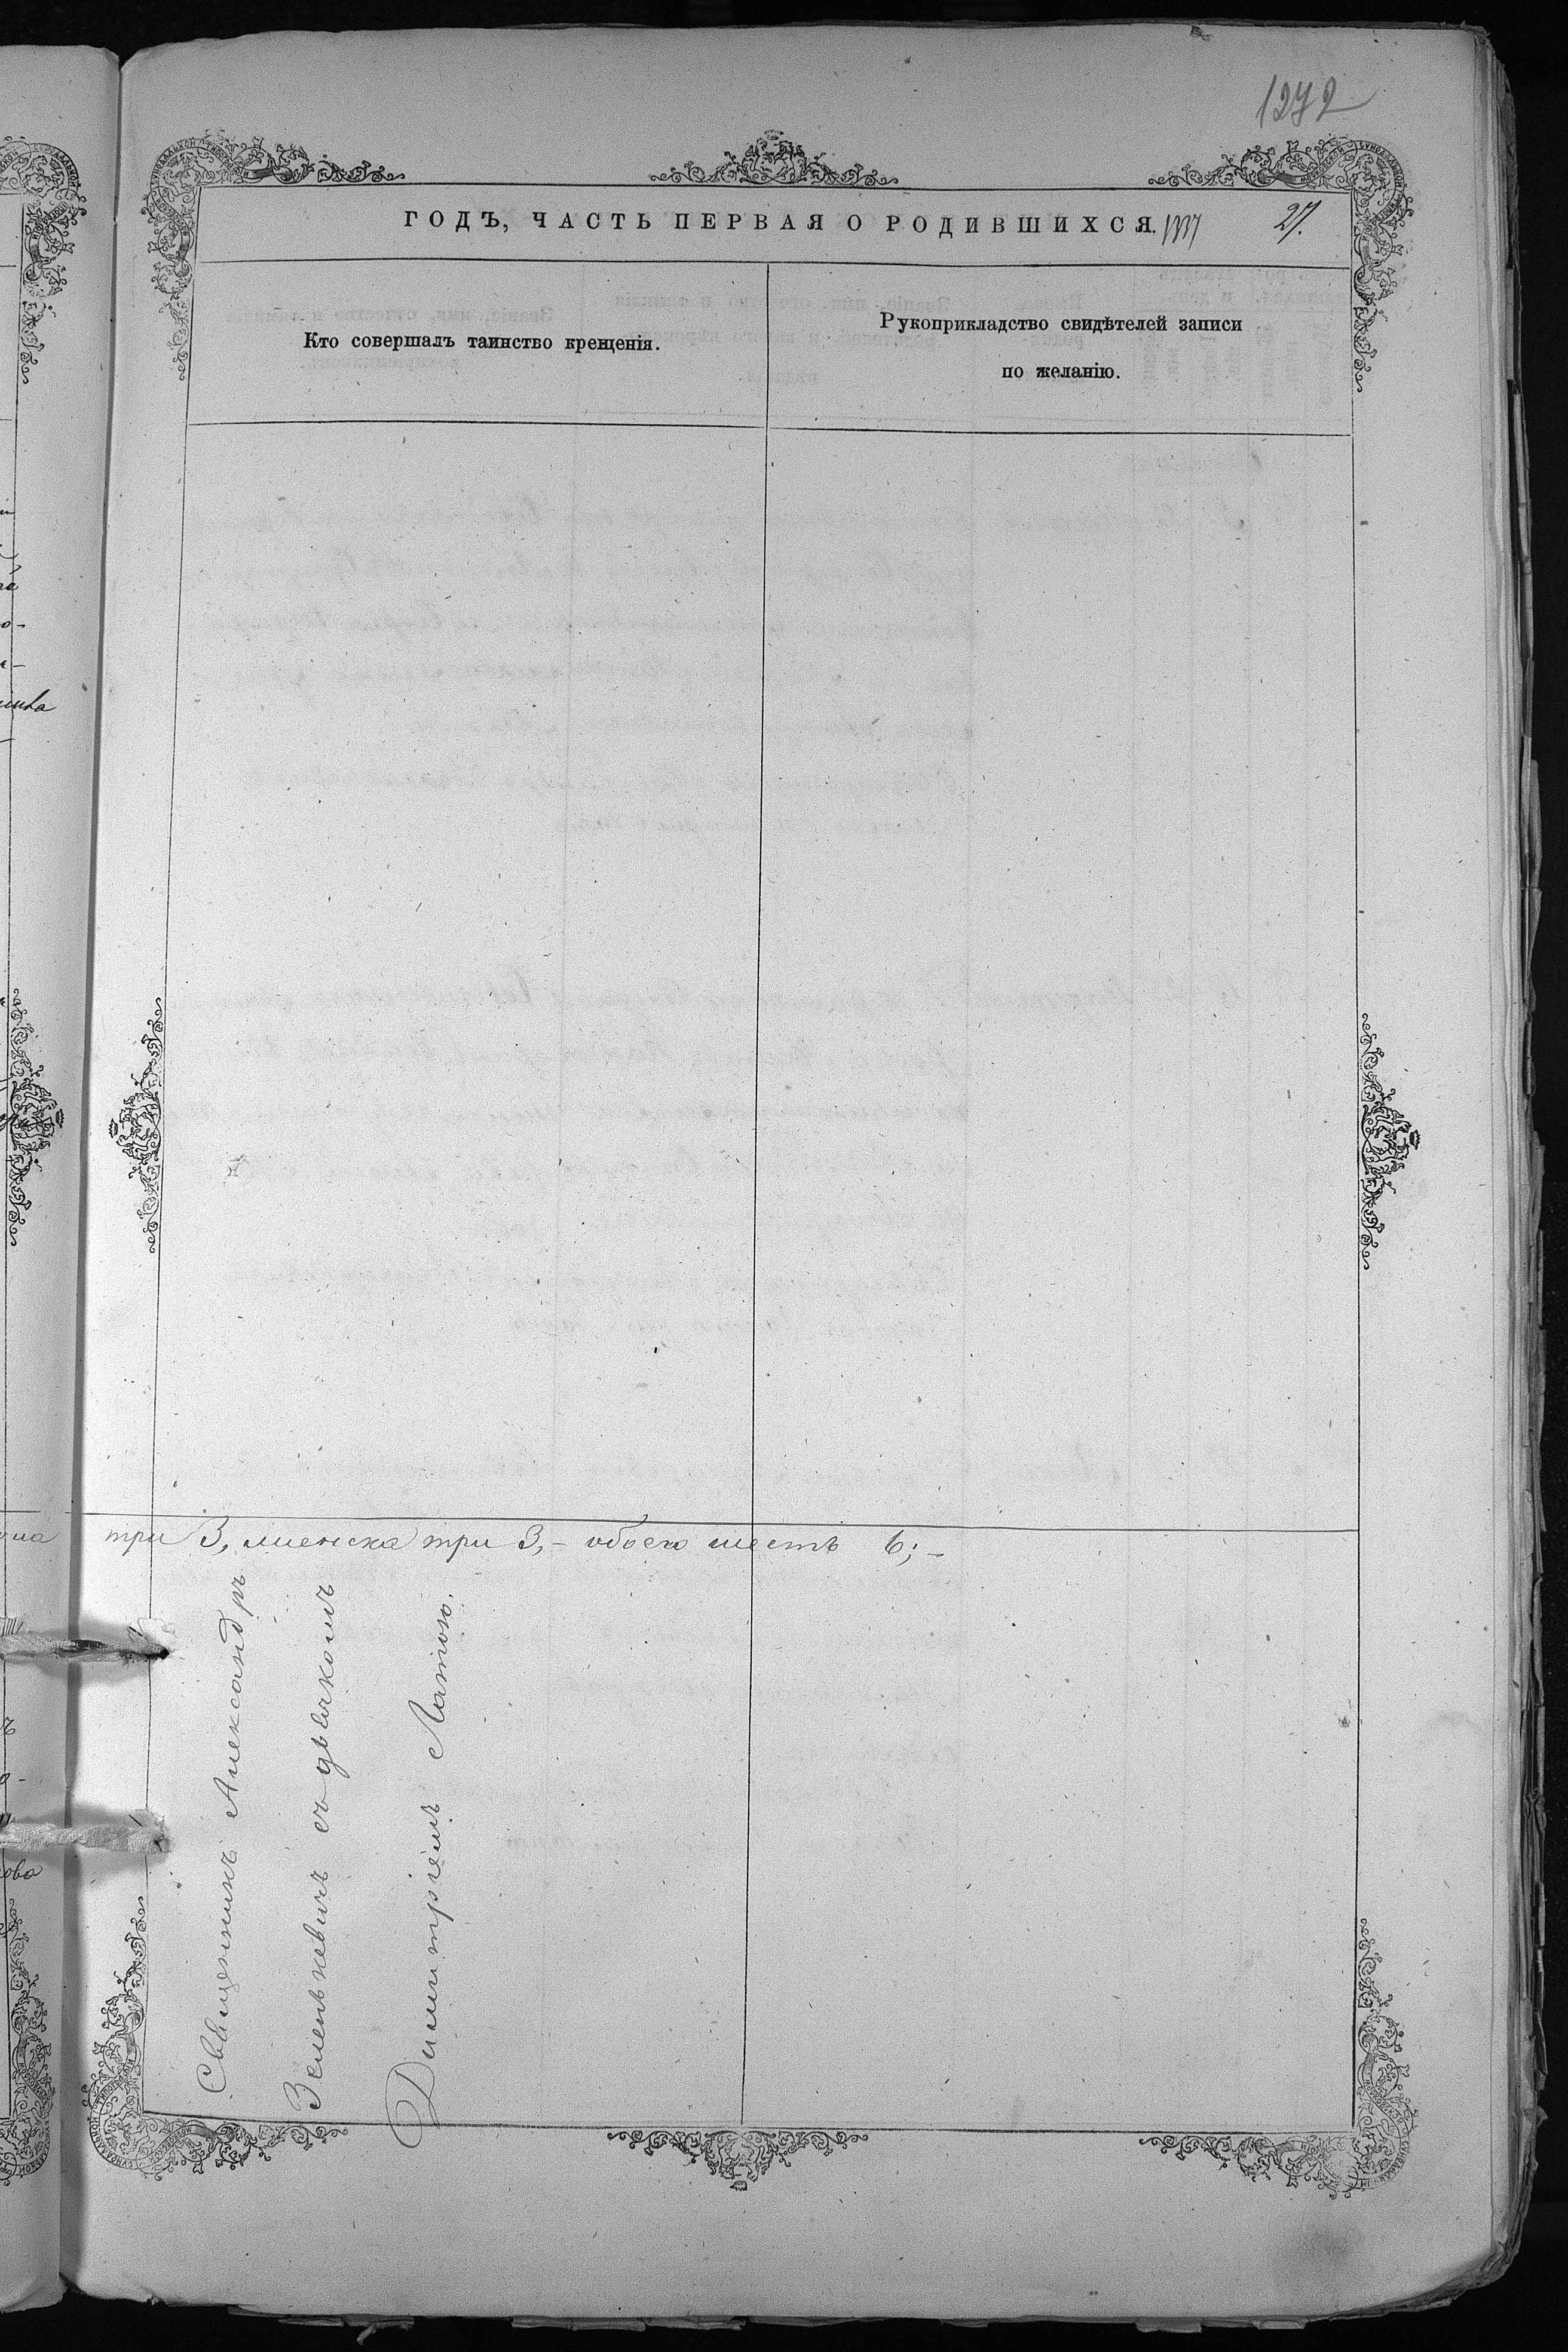 1272
ГОДЪ, ЧАСТЬ ПЕРВАЯ О РОДИВШИХСЯ.
27.
Кто совершалъ таинство крещенія.
Рукоприкладство свидѣтелей записи
по желанію.
три 3, женска три 3, – обоего шесть 6; –
Священникъ Александръ
Зеленкевичъ съ дьячкомъ
Димитріемъ